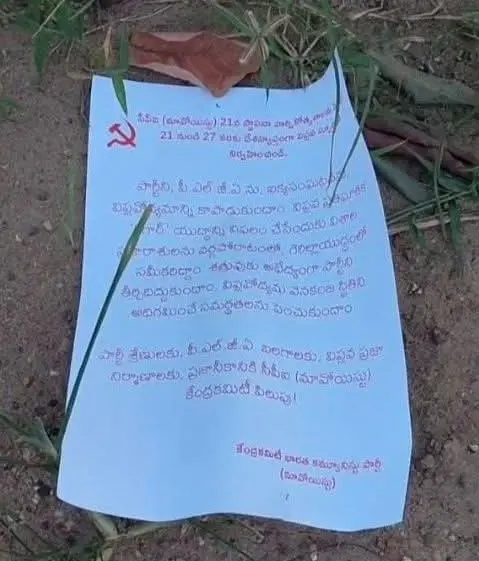 సీపీఐ (మావోయిస్టు) 21వ స్థాపనా వార్షికోత్సవాలను
21 నుండి 27 వరకు దేశవ్యాప్తంగా విప్లవ
నిర్వహించండి.
పార్టీని, పీ.ఎల్.జీ.ఏ ను, ఐక్యసంఘటనను,
విప్లవోద్యమాన్ని కాపాడుకుందాం. విప్లవ ప్రతిఘాతక
'కగార్' యుద్ధాన్ని విఫలం చేసేందుకు విశాల
ప్రజారాశులను వర్గపోరాటంలో, గెరిల్లాయుద్ధంలో
సమీకరిద్దాం. శత్రువుకు అభేద్యంగా పార్టీని
తీర్చిదిద్దుకుందాం. విప్లవోద్యమ వెనకంజ స్థితిని
అధిగమించే సమర్థతలను పెంచుకుందాం
పార్టీ శ్రేణులకు, పీ.ఎల్.జీ.ఏ. బలగాలకు, విప్లవ ప్రజా
నిర్మాణాలకు, ప్రజానీకానికి సీపీఐ (మావోయిస్టు)
కేంద్రకమిటీ పిలుపు!
కేంద్రకమిటీ భారత కమ్యూనిస్టు పార్టీ
(మావోయిస్టు)